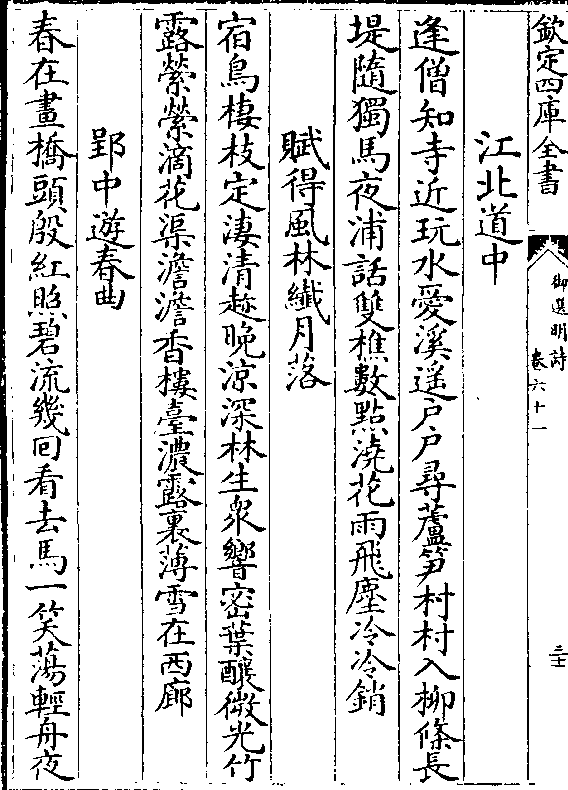 欽定四庫全書
御選明詩
卷六十一
江北道中
逢僧知寺近玩水愛溪遥户户尋蘆笋村村入柳條長
堤隨獨馬夜浦話雙樵數點澆花雨飛塵冷冷銷
賦得風林纎月落
宿鳥棲枝定淒清趂晚涼深林生衆響密葉釀微光竹
露縈縈滴花渠澹澹香樓臺濃露裏薄雪在西廊
郢中遊春曲
春在畫橋頭殷紅照碧流幾回看去馬一笑蕩輕舟夜